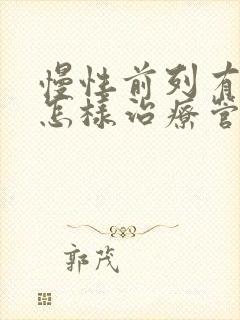 慢性前列有
怎樣治療管
郭茂